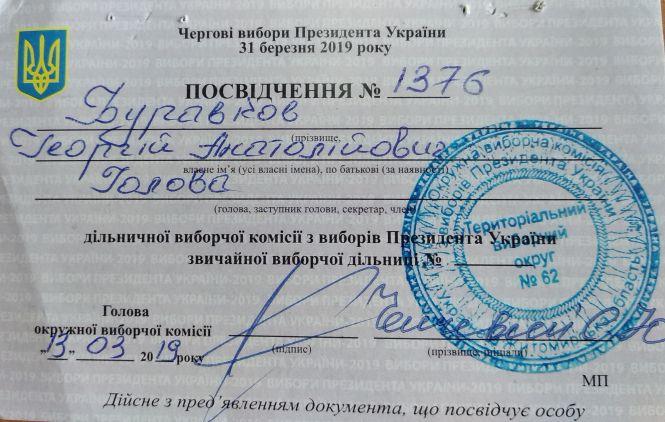 Чергові вибори Президента України
31 березня 2019 року
ПОСВІДЧЕННЯ № 1376
Буравков
(прізвище,
Георгій Анатолійович
власне ім’я (усі власні імена), по батькові (за наявності)
Голова
(голова, заступник голови, секретар, член)
дільничної виборчої комісії з виборів Президента України
звичайної виборчої дільниці №
Територіальний
виборчий
округ
№ 62
Окружна виборча комісія
з виборів Президента України
Голова
окружної виборчої комісії
„13„ 03 2019 року
(підпис)
(прізвище, ініціали)
МП
Дійсне з пред’явленням документа, що посвідчує особу